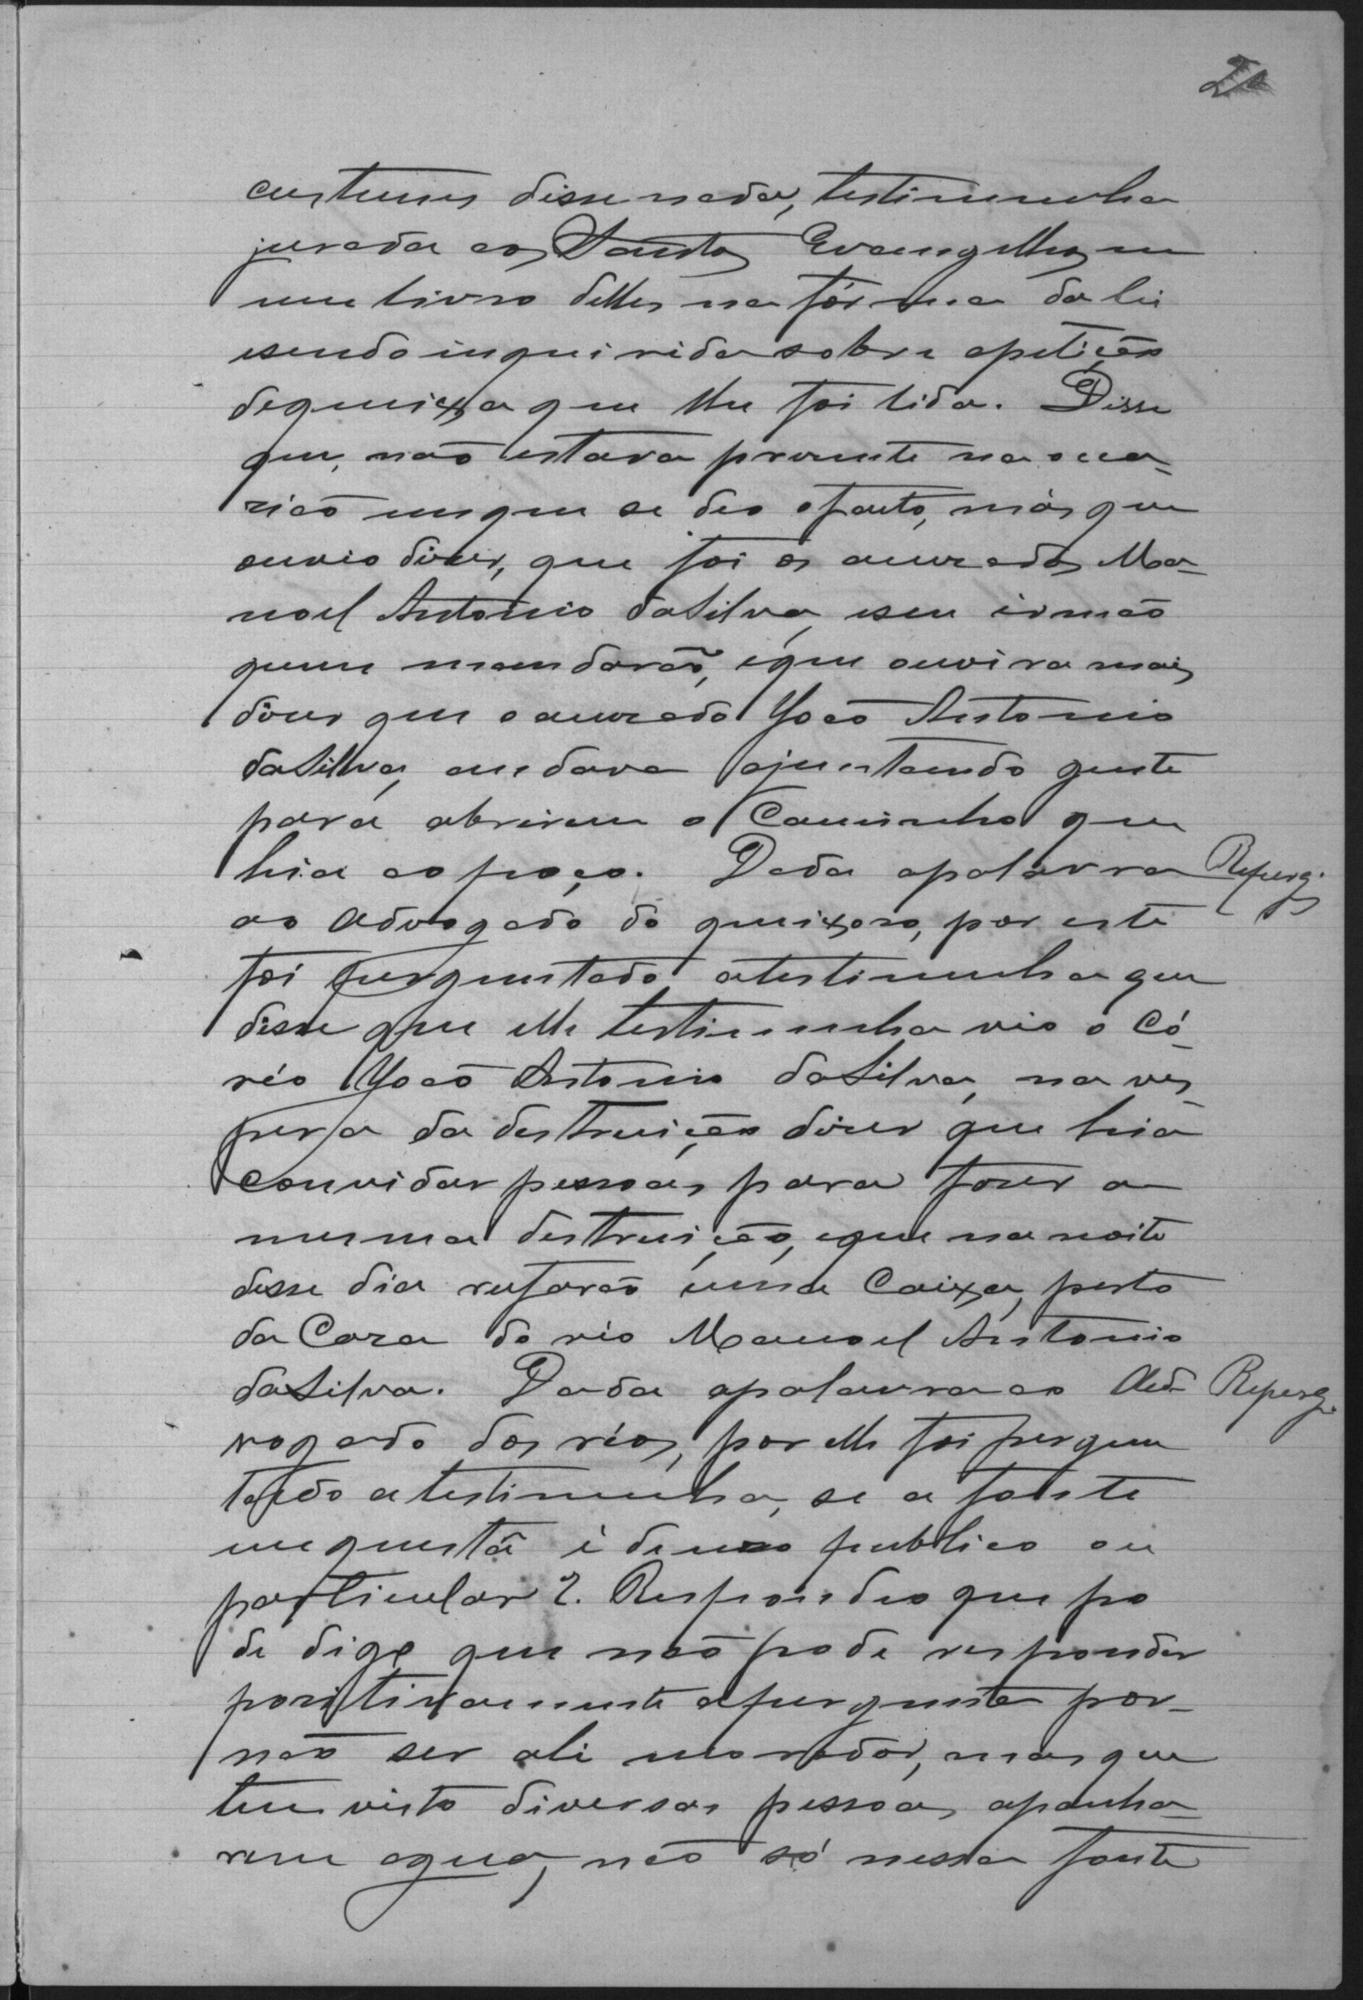 custumes disse nada, testimunha
jurada aos Santos Evangelhos em
um livro delles na fórma da lei
esendo inquirida sobre apetição
dequeixa que lhe foi lida. Disse
que, não estava prezente na oca-
zião emque se deo ofacto, más que
ouvio dizer, que foi os acuzados Ma-
noel Antonio daSilva, eseu irmão
quem mandarão, eque ouvira mais
dizer que oacuzado João Antonio
daSilva, andava ajuntando gente
para abrirem o Caminho que
hia aopoço. Dada apalavra
Reperg.
ao Advogado do queixoso, por este
foi perguntado atestimunha que
disse que elle testimunha vio o Có-
réo João Antonio daSilva, na ves-
pera da destruição dizer que hia
convidar pessoas para fazer a
mesma destruição, eque na noite
desse dia rufarão uma Caixa, perto
da Caza do réo Manoel Antonio
daSilva. Dada apalavra ao Ad-
Reperg.
vogado dos réos, por elle foi pergun
tado a testimunha, se a fonte
em questã é de uzo publico ou
particular?. Respondeo que po
de digo que não pode responder
pozitivamente apergunta por-
não ser ali morador, mas que
tem visto diversas pessoas, apanha-
rem agua, não só nessa fonte